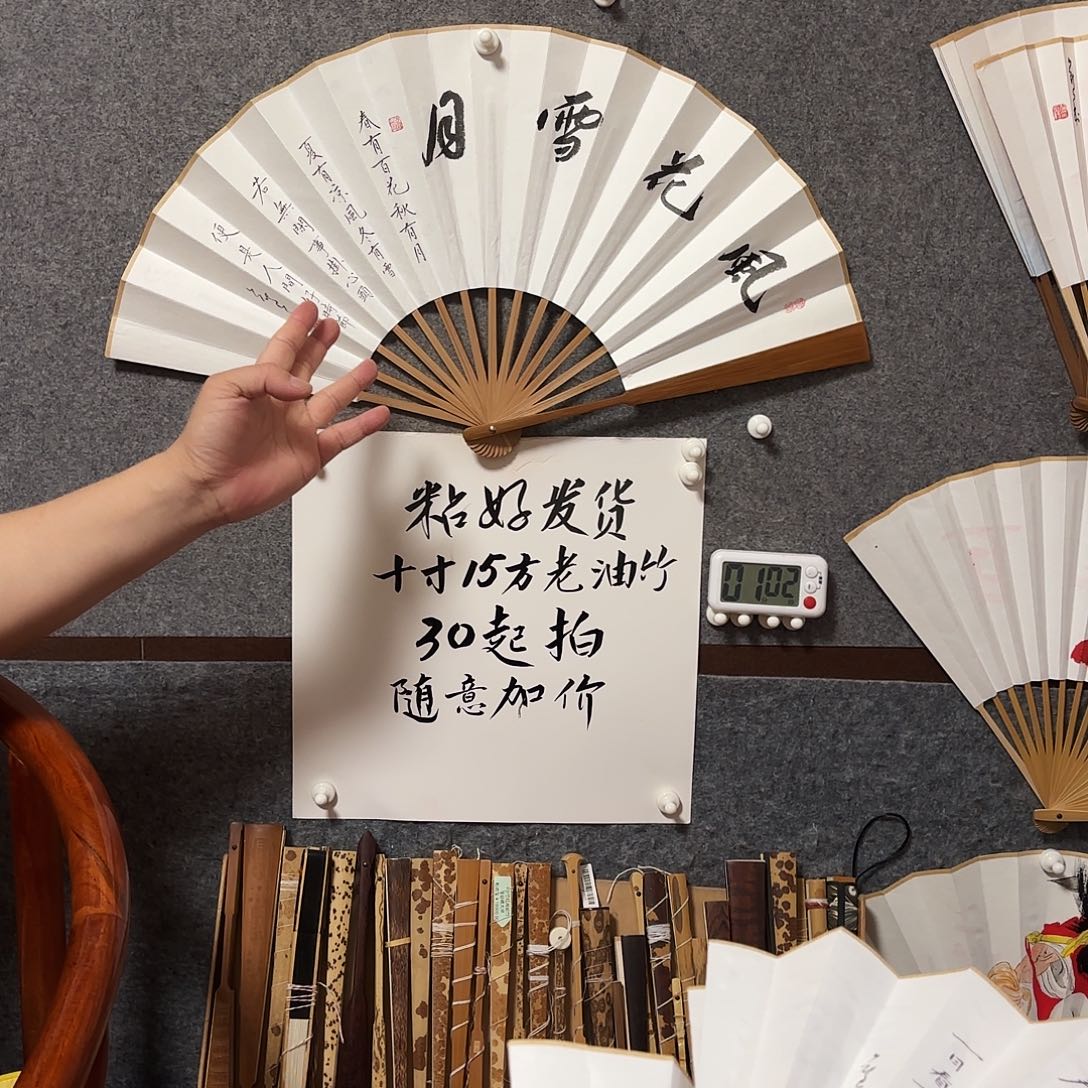 風花雪月
春有百花秋有月
夏有凉風冬有雪
若無閒事掛心頭
便是人間好時節
粘好发货
十寸15方老油竹
30起拍
随意加价
0102